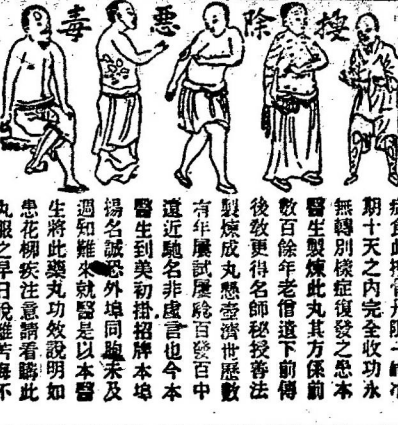 授除惡毒
食此
期十天之內完全收功永
無轉別樣症復發之患本
醫生製煉此丸其方係前
數百餘年老僧遺下前傳
後教更得名師秘授善法
製煉成丸懸壺濟世歷數
有年屢試屢驗百發百中
遠近馳名非虛言也今本
醫生到美初掛招牌本埠
揚名誠恐外埠同胞未及
週知難來就醫是以本醫
生將此藥丸功效說明如
患花柳疾注意請看購此
丸服之早日脫離苦海不